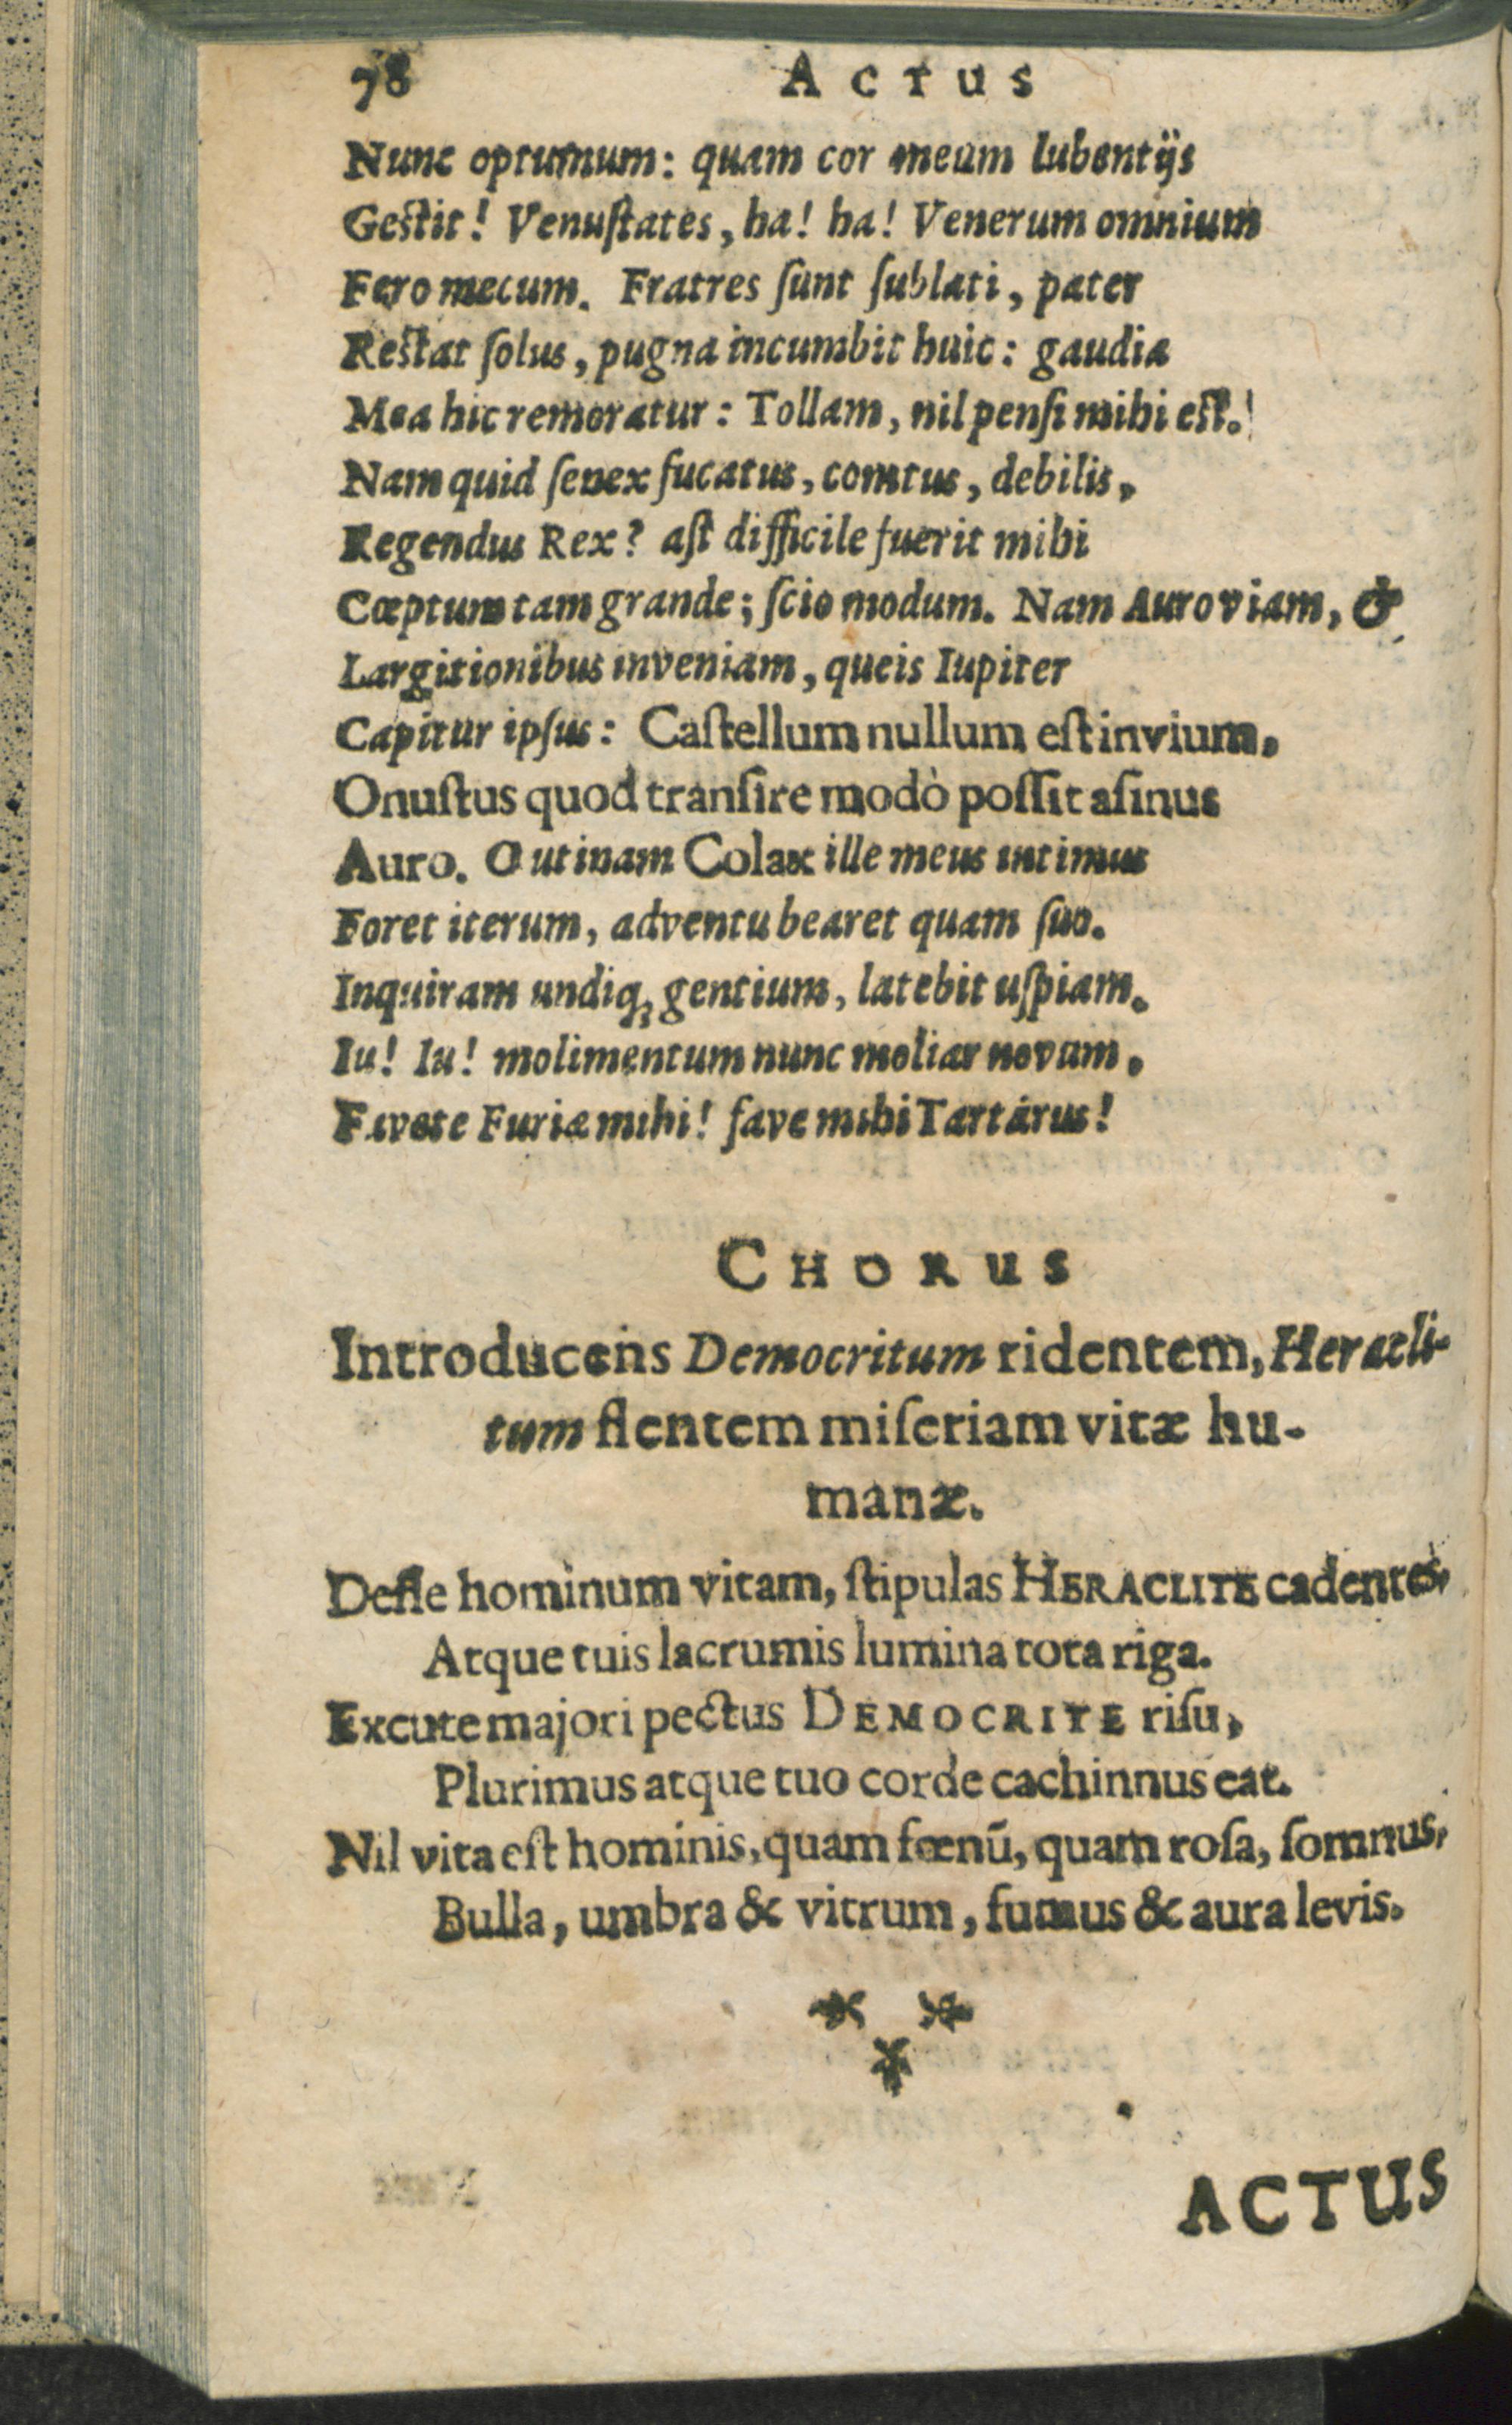 78 ACTUS
Nunc optumum: quam cor meum lubentijs
Gestit! Venuſtates, ha! ha! Venerum omnium
Fero mecum. Fratres ſunt ſublati, pater
Restat ſolus, pugna incumbit huic: gaudia
Mea hic remoratur: Tollam, nil penſi mihi est.
Nam quid ſenex fucatus, comtus, debilis,
Regendus Rex? aſt difficile fuerit mihi
Cœptum tam grande; ſcio modum. Nam Auro viam, &
Largitionibus inveniam, queis Iupiter
Capitur ipſus: Caſtellum nullum eſt invium,
Onuſtus quod tranſire modò poſſit aſinus
Auro. O utinam Colax ille meus intimus
Foret iterum, adventu bearet quam ſuo.
Inquiram undiq; gentium, latebit uſpiam.
Iu! Iu! molimentum nunc moliar novum,
Favete Furiæ mihi! fave mihi Tartarus!
CHORUS
Introducens Democritum ridentem, Heracli-
tum flentem miſeriam vitæ hu-
manæ.
Defle hominum vitam, ſtipulas HERACLITE cadentes,
Atque tuis lacrumis lumina tota riga.
Excute majori pectus DEMOCRITE riſu,
Plurimus atque tuo corde cachinnus eat.
Nil vita eſt hominis, quam fœnū, quam roſa, ſomnus,
Bulla, umbra & vitrum, fumus & aura levis.
ACTUS